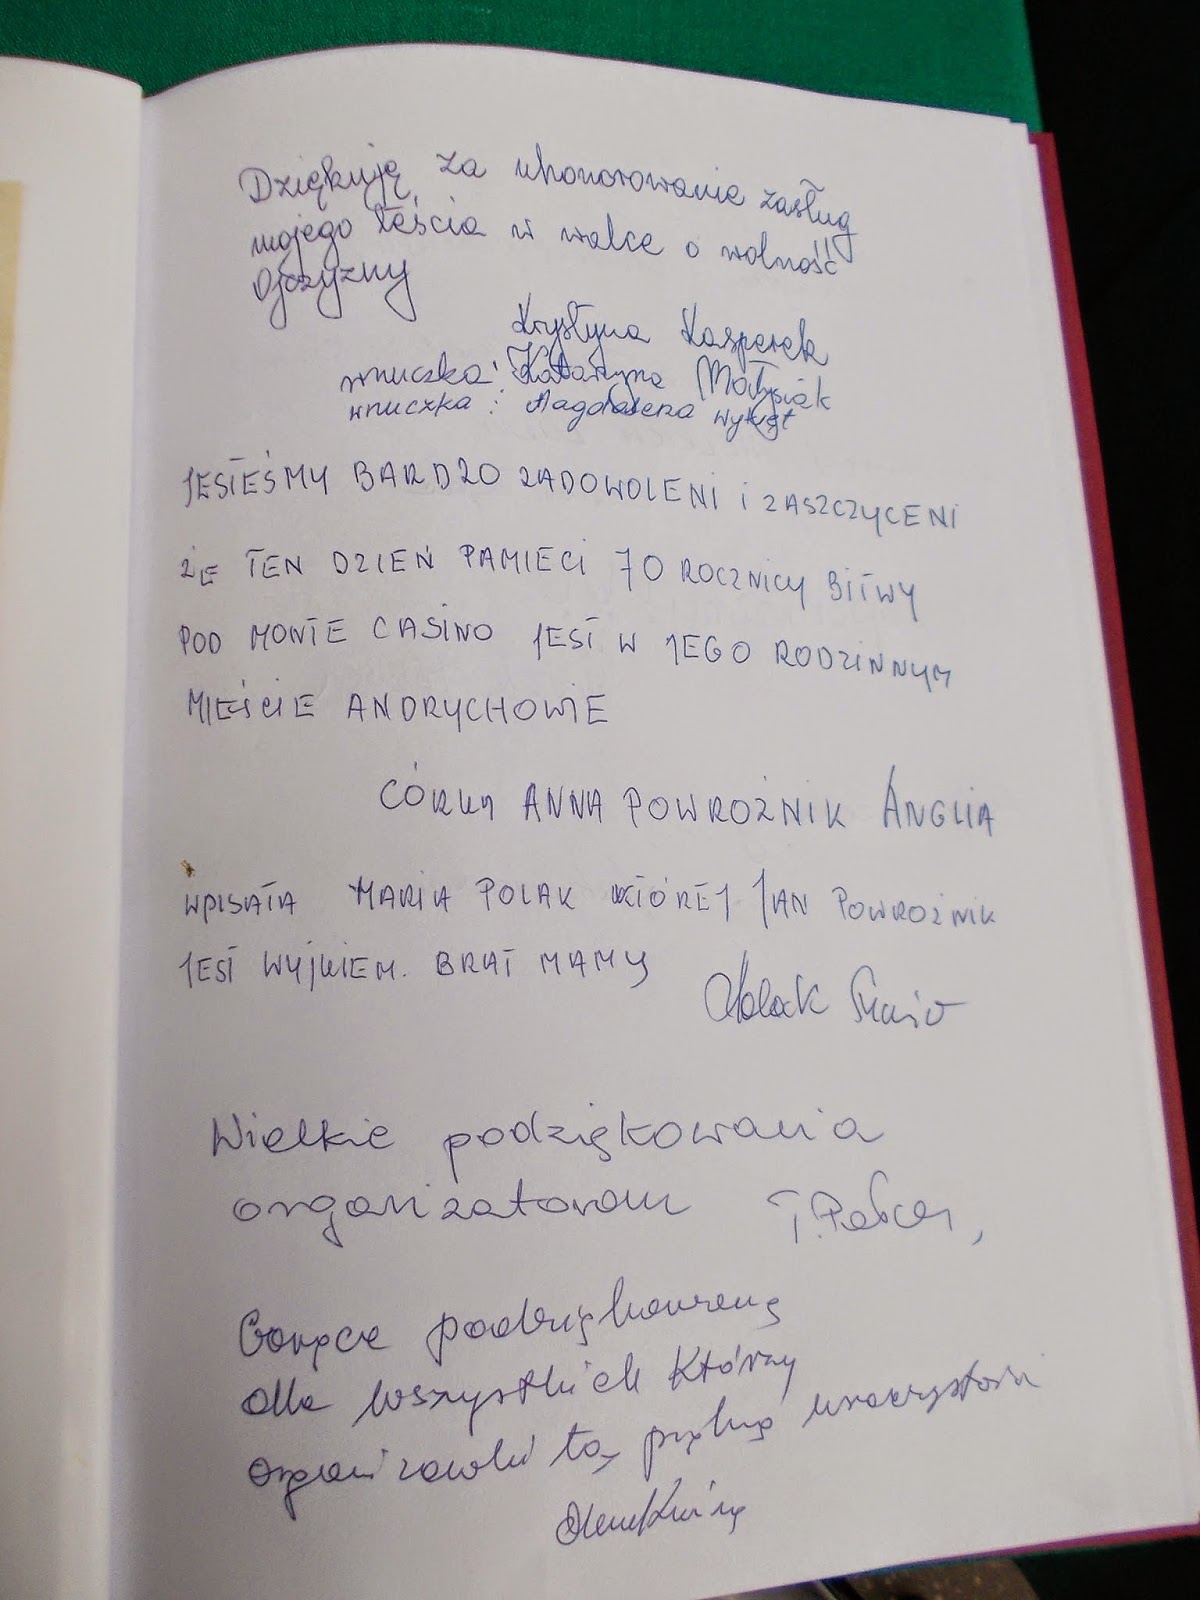 Dziękuję za uhonorowanie zasług
mojego teścia w walce o wolność
Ojczyzny
Krystyna Kasperek
wnuczka: Katarzyna Matysiak
wnuczka: Magdalena
JESTEŚMY BARDZO ZADOWOLENI I ZASZCZYCENI
ŻE TEN DZIEŃ PAMIECI 70 ROCZNICY BITWY
POD MONTE CASINO JEST W JEGO RODZINNYM
MIEŚCIE ANDRYCHOWIE
CÓRKA ANNA POWROŻNIK ANGLIA
WPISAŁA MARIA POLAK KTÓREJ JAN POWROŻNIK
JEST WUJKIEM. BRAT MAMY
Wielkie podziękowania
organizatorom
Gorące
dla wszystkich którzy
organizowali tą piękną